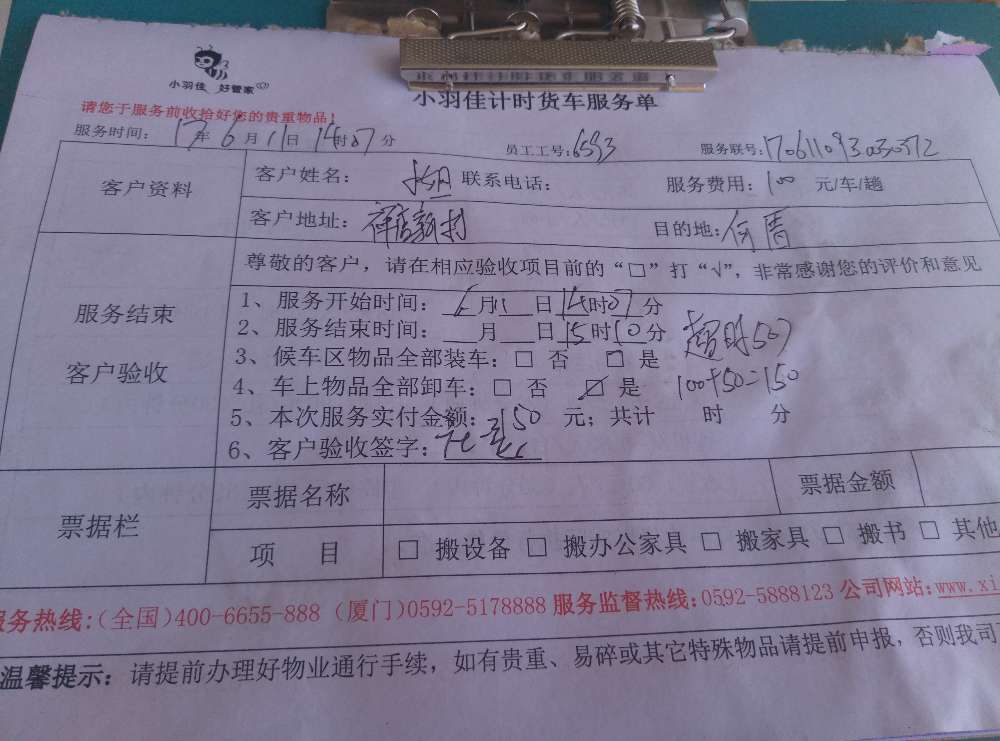 小羽佳 好管家
小羽佳计时货车服务单
请您于服务前收拾好您的贵重物品!
服务时间: 17年6月11日14时07分 员工工号:6593 服务联号:
客户资料
客户姓名: 联系电话: 服务费用:100 元/车/趟
客户地址: 祥店新村 目的地:何厝
服务结束
客户验收
尊敬的客户,请在相应验收项目前的“□”打“√”,非常感谢您的评价和意见
1、服务开始时间: 6月11日14时07分
2、服务结束时间: 月 日15时10分 超时50
3、候车区物品全部装车:□ 否 □ 是
4、车上物品全部卸车:□ 否 ☑ 是 100+50=150
5、本次服务实付金额:150 元;共计 时 分
6、客户验收签字:
票据栏
票据名称 票据金额
项 目 □ 搬设备 □ 搬办公家具 □ 搬家具 □ 搬书 □ 其他
服务热线:(全国)400-6655-888 (厦门)0592-5178888 服务监督热线:0592-5888123 公司网站:www.xi
温馨提示:请提前办理好物业通行手续,如有贵重、易碎或其它特殊物品请提前申报,否则我司